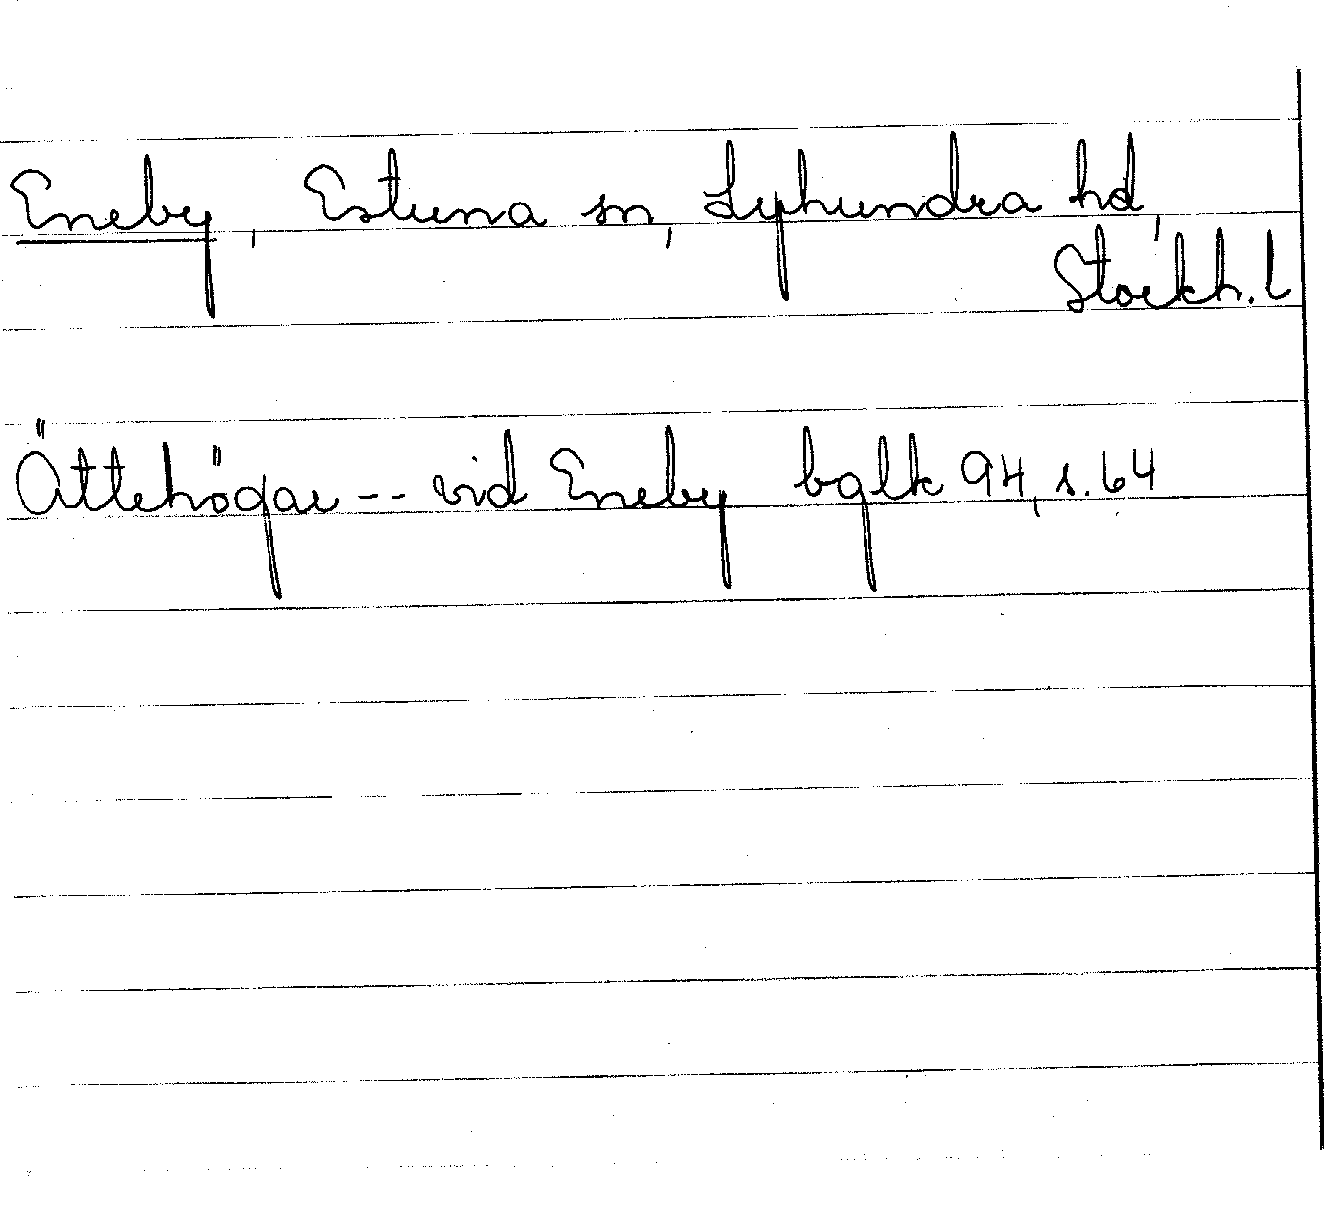 Eneby, Estuna sn, Lyhundra hd,
Stockh. l
Ättehögar -- vid Eneby bglk 94, s. 64